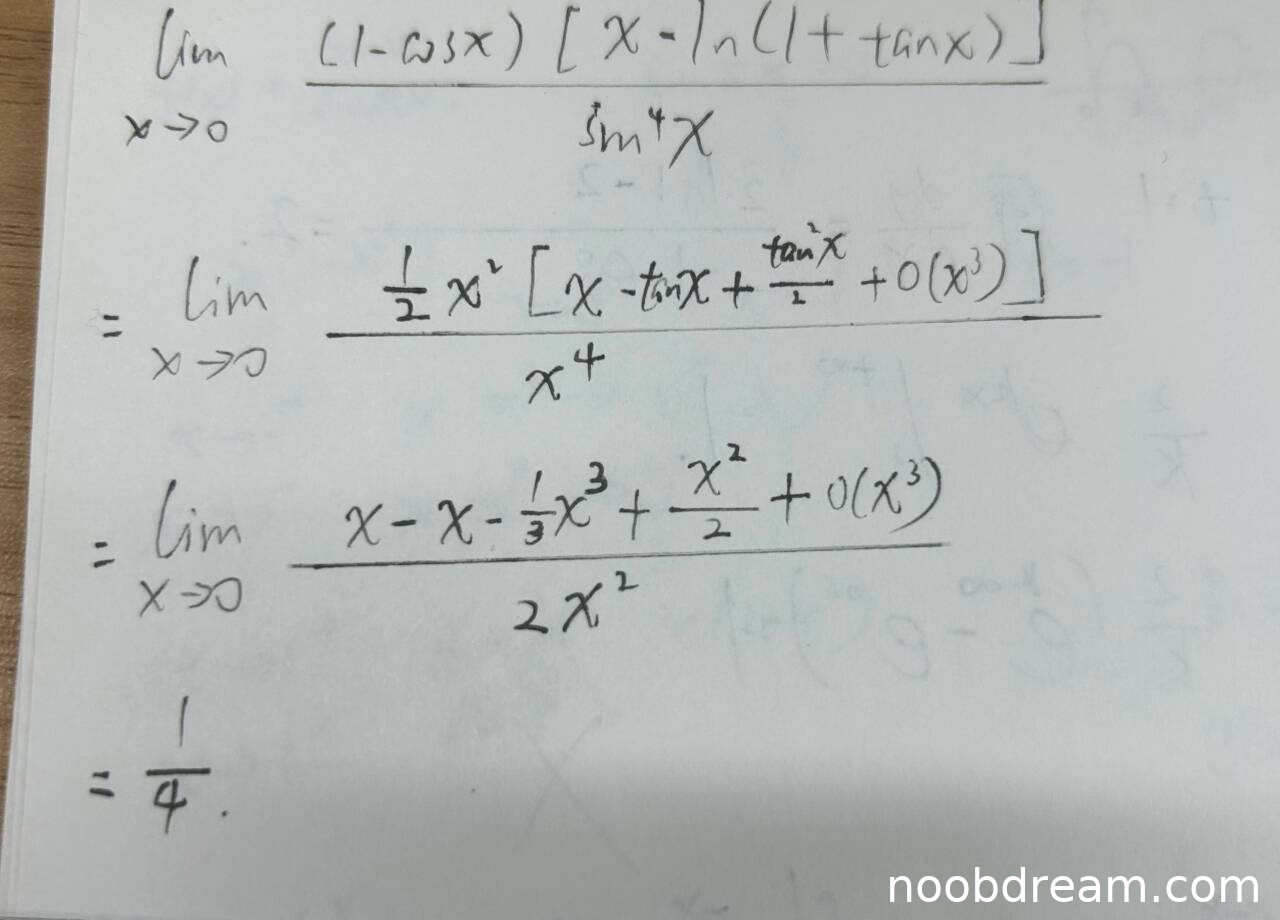 lim x→0 (1-cosx) [x-ln(1+tanx)] / sin⁴x
= lim x→0 1/2 x² [x-tanx+ tan²x/2 +O(x³)] / x⁴
= lim x→0 x-x-1/3 x³+ x²/2 +O(x³) / 2x²
= 1/4.
noobdream.com